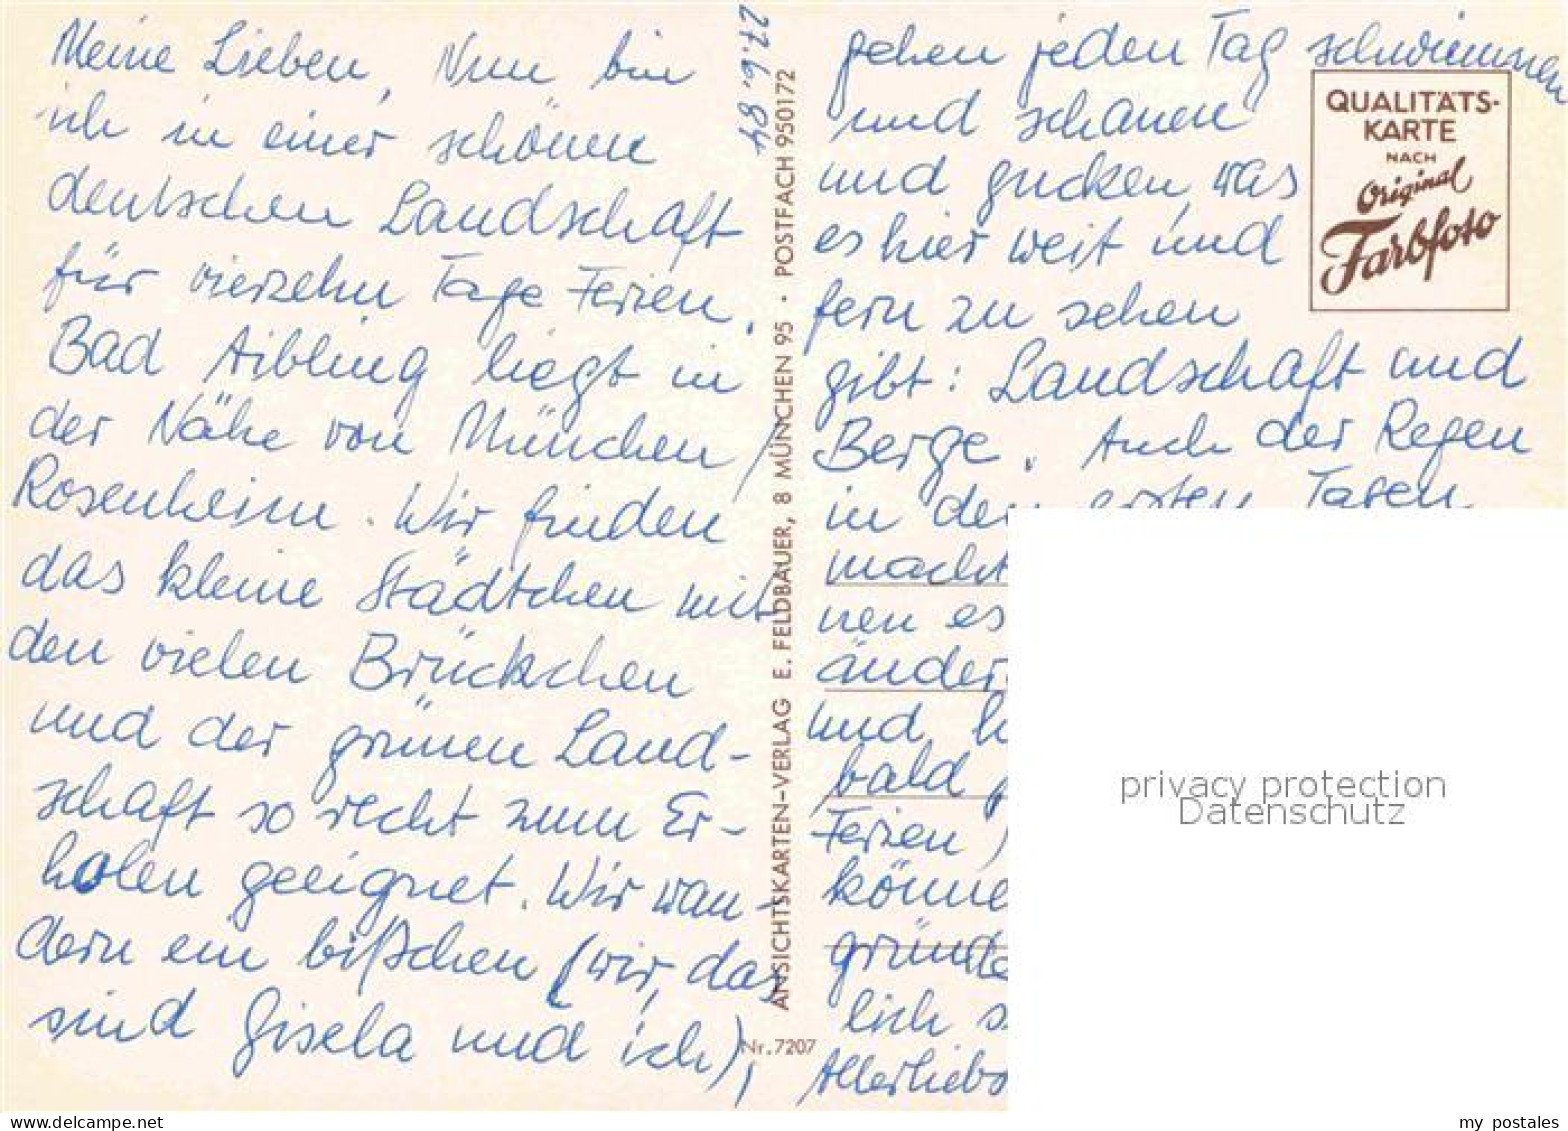 Meine Lieben, Nun bin
ich in einer schönen
deutschen Landschaft
für vierzehn Tage Ferien.
Bad Aibling liegt in
der Nähe von München/
Rosenheim. Wir finden
das kleine Städtchen mit
den vielen Brückchen
und der grünen Land-
schaft so recht zum Er-
holen geeignet. Wir wan-
dern ein bißchen (wir, das
sind Gisela und ich),
27.6.84
ANSICHTSKARTEN-VERLAG E. FELDBAUER, 8 MÜNCHEN 95 · POSTFACH 950172
Nr. 7207
gehen jeden Tag schwimmen
und schauen
und gucken, was
es hier weit und
fern zu sehen
gibt: Landschaft und
Berge. Auch der Regen
in den ersten Tagen
macht
nen es
änder
und
bald
Ferien)
könne
gründ
lich s
Allerliebs
QUALITÄTS-
KARTE
NACH
Original
Farbfoto
privacy protection
Datenschutz
my postales